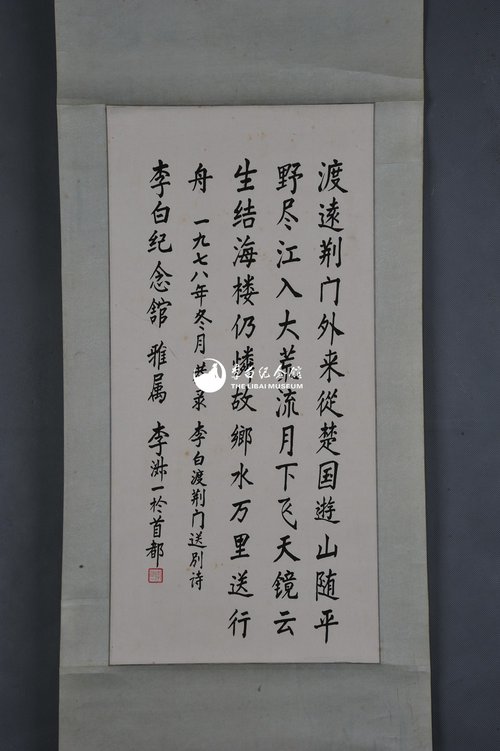 渡遠荆门外来從楚国遊山随平
野尽江入大荒流月下飞天镜云
生结海楼仍憐故鄉水万里送行
舟 一九七八年冬月 恭录 李白渡荆门送别诗
李白纪念館 雅属 李淑一於首都
李白纪念馆
THE LIBAI MUSEUM